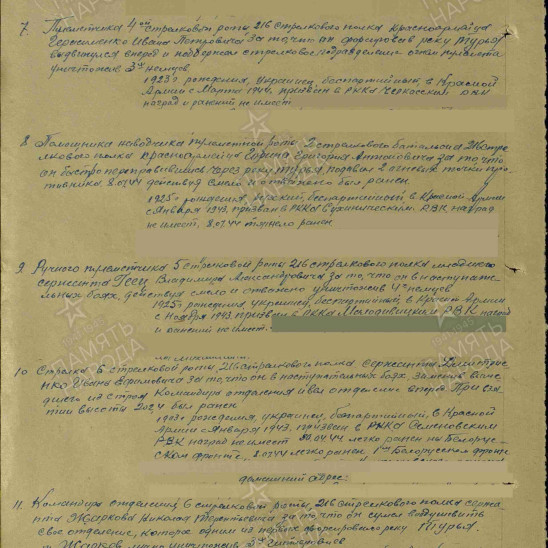 7. Пулеметчика 4ой стрелковой роты 216 стрелкового полка красноармейца
Герасименко Ивана Петровича за то, что он форсировав реку Турья
выдвинулся вперед и поддержал стрелковое подразделение огнем пулемета
уничтожив 3х немцев
1923 г. рождения, украинец, беспартийный, в Красной
Армии с Марта 1944, призван в РККА Черкасский РВК
наград и ранений не имеет
8. Помощника наводчика пулеметной роты 2 стрелкового батальона 216 стре
лкового полка красноармейца Григория Антоновича за то что
он быстро переправившись через реку Турья, подавил 2 огневых точки про
тивника 8.07.44 действуя смело и отважно был ранен
1925 г. рождения, русский, беспартийный, в Красной Армии
с Января 1943, призван в РККА РВК, наград
не имеет, 8.07.44 тяжело ранен
9. Ручного пулеметчика 5 стрелковой роты 216 стрелкового полка младшего
сержанта Владимира за то, что он в наступате
льных боях, действуя смело и отважно уничтожив 4х немцев
1925 г. рождения, украинец, беспартийный, в Красной Армии
с Ноября 1943, призван в РККА РВК наград
и ранений не имеет.
10. Стрелка 6 стрелковой роты 216 стрелкового полка сержанта Дмитрие
нко Ивана Ефимовича за то, что он в наступательных боях, заменив выбы
лого из строя Командира отделения и вел отделение вперед. При взя
тии высоты был ранен
рождения, украинец, беспартийный, в Красной
Армии с Января 1943, призван в РККА Семеновским
РВК наград не имеет легко ранен на Белорус-
ском фронте, 8.07.44 легко ранен, 1го Белорусского фронта
домашний адрес:
11. Командира отделения 6 стрелковой роты, 216 стрелкового полка сержа
нта Жаркова Николая Терентьевича за то, что он сумел воодушевить
свое отделение, которое одним из первых форсировало реку Турья.
Жарков лично уничтожил 3х гитлеровцев
ПАМЯТЬ
НАРОДА